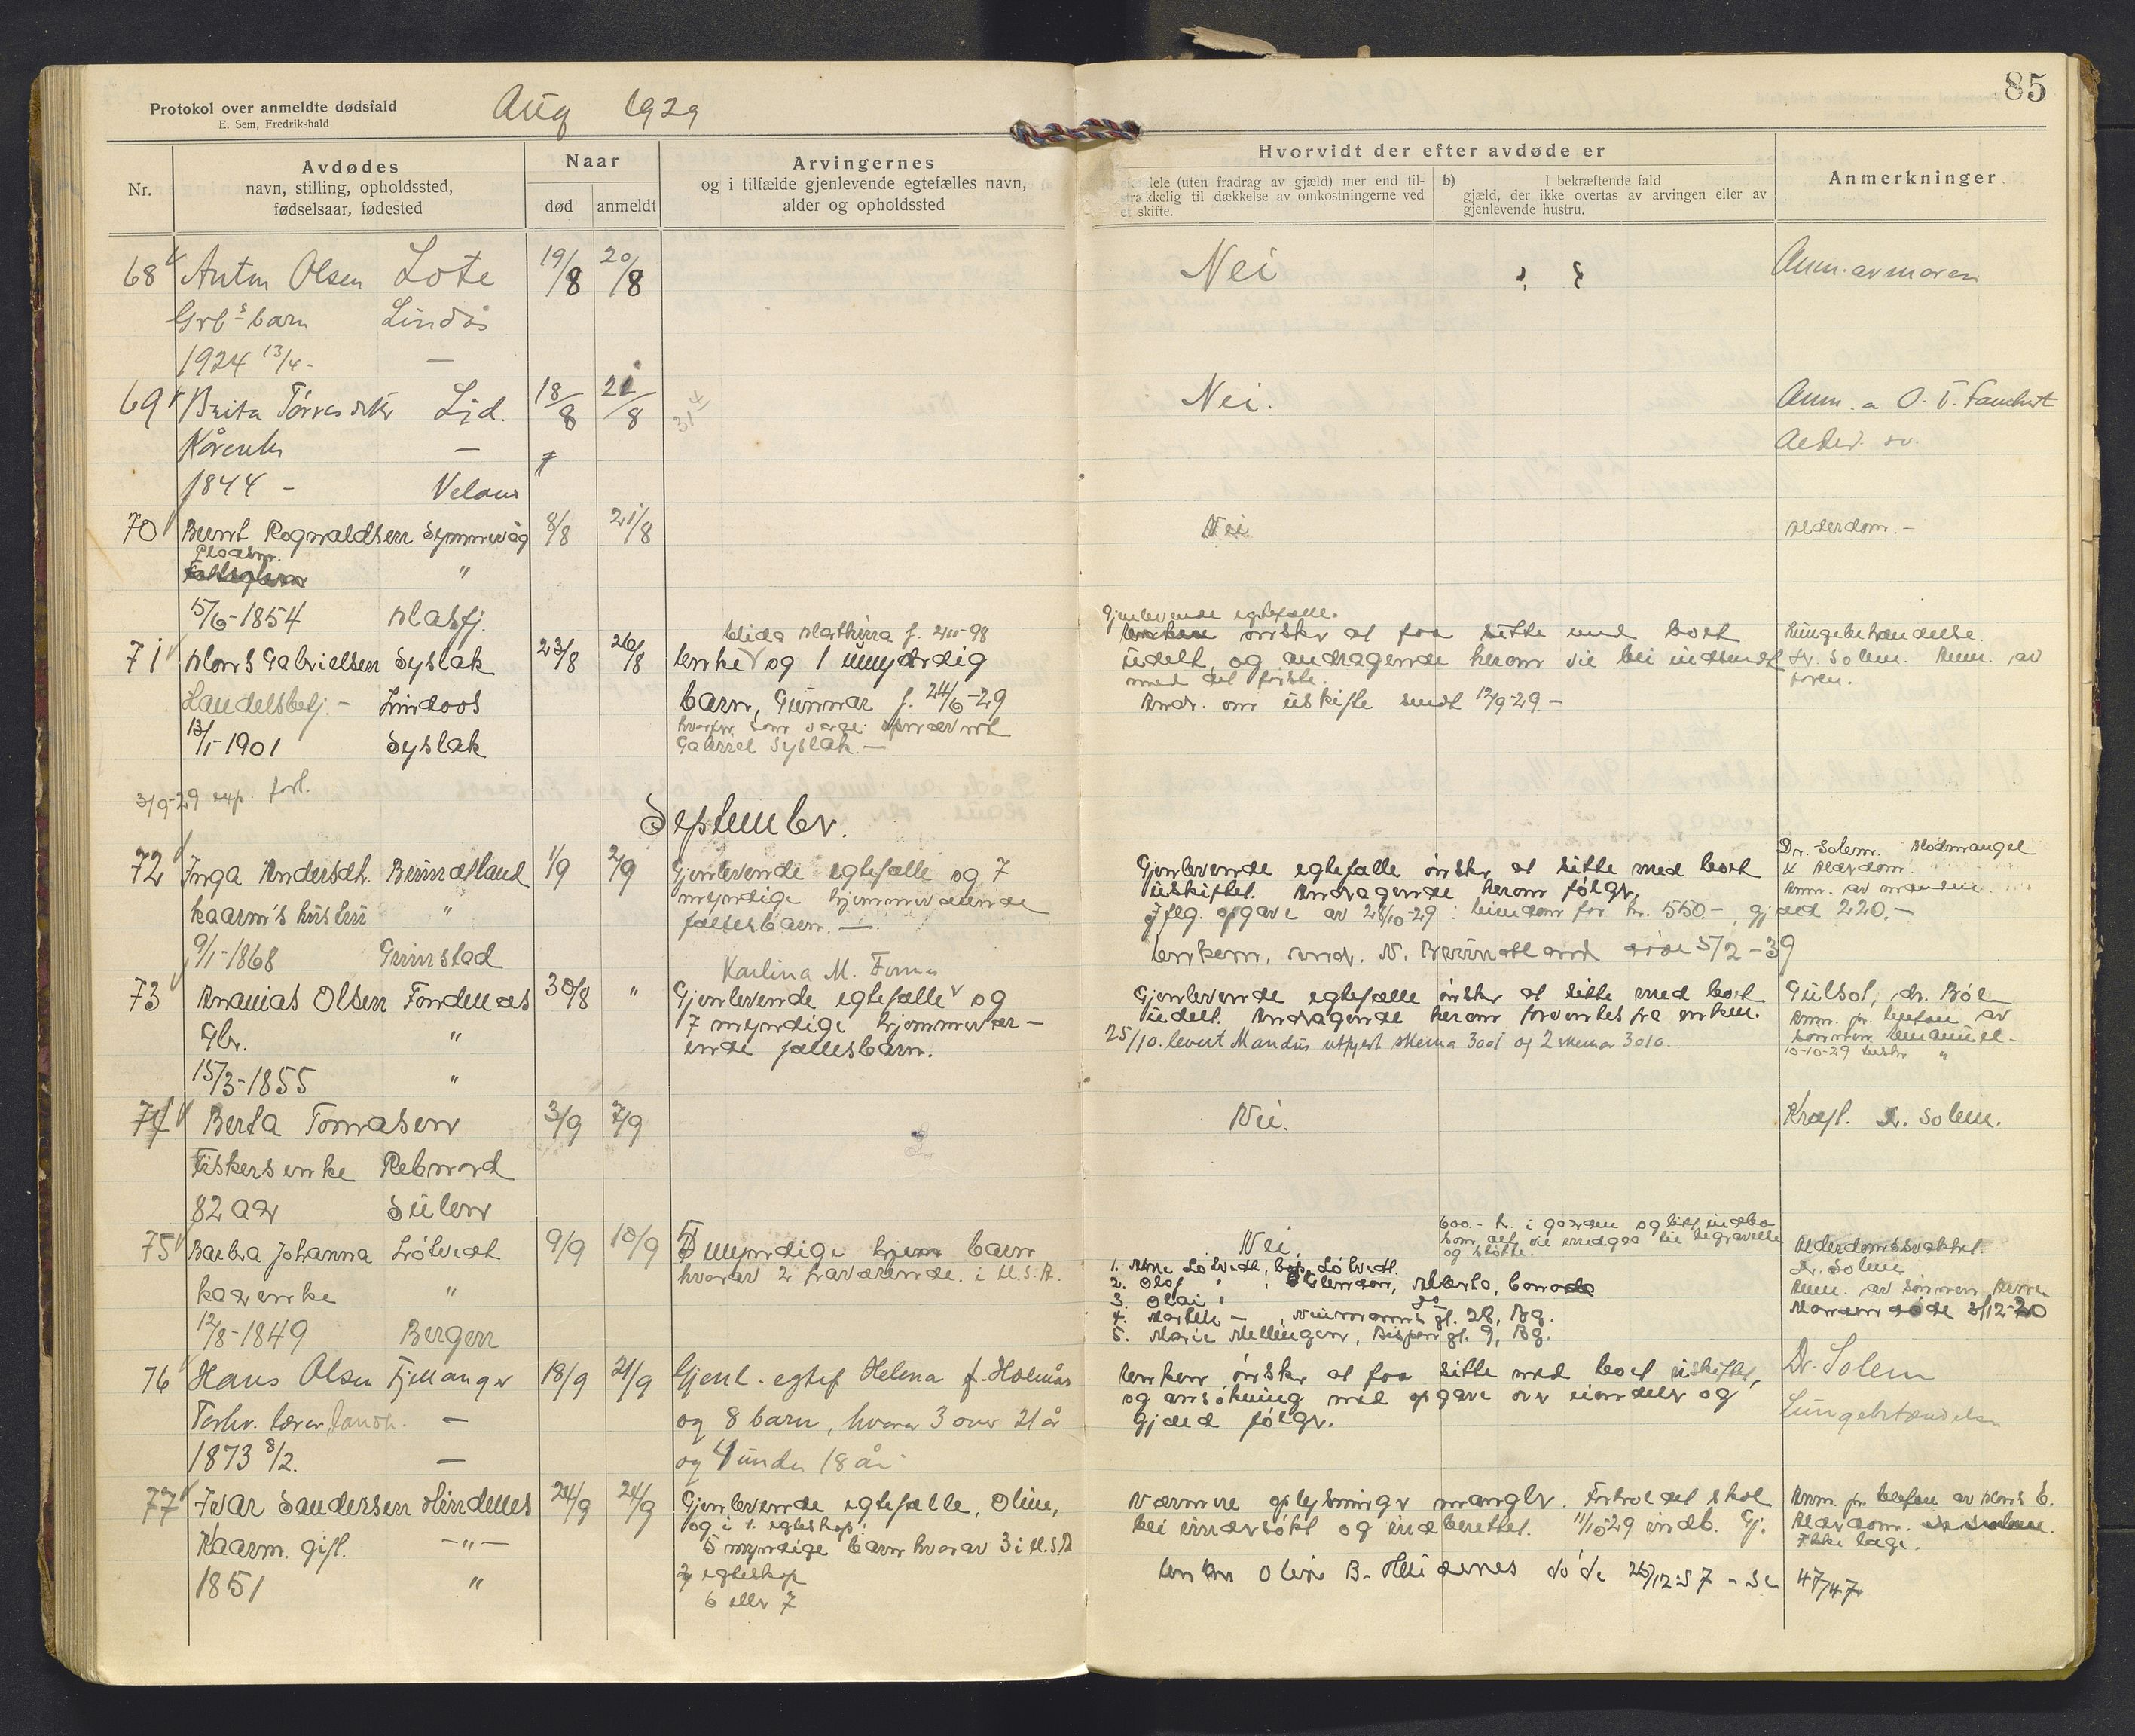 Protokol over anmeldte dødsfald
E. Sem, Fredrikshald
Aug 1929
85
Nr.
Avdødes
navn, stilling, opholdssted,
fødselsaar, fødested
Naar
død
anmeldt
Arvingernes
og i tilfælde gjenlevende egtefælles navn,
alder og opholdssted
Hvorvidt der efter avdøde er
lele (uten fradrag av gjæld) mer end til-
strækkelig til dækkelse av omkostningerne ved
et skifte.
b) I bekræftende fald
gjæld, der ikke overtas av arvingen eller av
gjenlevende hustru.
Anmerkninger
68 Anton Olsen Lote 19/8 20/8 Nei Anm. av moren
Grbs barn Lindås
1924 13/4 - —
69 Brita Torresdtr Lid. 18/8 21/8 Nei. Anm. a O. T.
Kårenke —
1844 - 
70 Bernt Rognaldsen Synnevåg 8/8 21/8 Nei Alderdom. -
"
5/6-1854 Masfj.
Gjenlevende egtefælle.
71 Mons Gabrielsen Syslak 23/8 26/8 Enke og 1 umyndig
ønsker at faa sitte med boet
udelt, og andragende herom vil bli indsendt
med det første.
Dr. Solem. Anm. av
Handelsbetj. - Lindaas
barn, Gunnar f. 24/6-29
Andr. om uskifte sendt 12/9-29. -
13/1-1901 Syslak
hvorfor som verge opnævnt
Gabriel Syslak. —
3/9-29 exp. forl.
September.
72 Inga Andersdtr. Brundtland 1/9 2/9 Gjenlevende egtefælle og 7
myndige hjemmeværende
fællesbarn. —
Gjenlevende egtefælle ønsker at sitte med boet
uskiftet. Andragende herom følger.
Iflg. opgave av 28/10-29: Eiendom for kr. 550.-, gjæld 220.-
Dr. Solem. Blodmangel
& Alderdom.
Anm. av manden.
kaarm's hustru "
9/1-1868 Grimstad
Enkem. Andr. N. Brundtland døde 5/2-39
73 Ananias Olsen Fondenes 30/8 " Gjenlevende egtefælle og
Karlina M.
7 myndige hjemmevær-
ende fællesbarn.
Gjenlevende egtefælle ønsker at sitte med boet
udelt. Andragende herom forventes fra enken.
25/10. levert Mandus utfyllt skema 3001 og 2 skemaer 3010.
Gulsot, dr. Bøe
Anm. pr. telefon av
sønnen Emanuel -
Gbr. "
15/3-1855 "
74 Berta Tomasen 3/9 7/9 Nei. Kræft. Dr. Solem.
Fiskersenke Rebnord
82 aar Sulen
75 Barbra Johanna Løtvedt 9/9 10/9 5 myndige barn
hvorav 2 fraværende i U.S.A.
Nei.
600.- kr. i gaarden og litt indbo
som alt vil medgaa til begravelse
og støtte.
1. Anne Løtvedt, Løtvedt.
2. Olaf " Alberta, Canada
3. Olai "
4. — , Neumanns gt. 28, Bg.
5. Marie Mellingen, Bispen gt. 9, Bg.
Alderdomssvakhet.
Dr. Solem
Manden døde 3/12-20
kaarenke "
12/8-1849 Bergen
76 Hans Olsen Fjellanger 18/9 21/9 Gjenl. egtef Helena f. Holmås
Forhv. lærer, landh. —
og 8 barn, hvorav 3 over 21 år
og 4 under 18 år
1873 8/2. —
Enken ønsker at faa sitte med boet uskiftet,
og ansøkning med opgave over eiendeler og
gjæld følger.
Dr. Solem
Lungebetændelse
77 Ivar Sandersen Hindenes 24/9 24/9 Gjenlevende egtefælle, Oline,
og i 1. egteskap:
5 myndige barn hvorav 3 i U.S.A
2 egteskap
6 eller 7
Kaarm. gift. -"-
1851 "
Nærmere oplysninger mangler. Forhold skal
bli undersøkt og indberettet. 11/10-29 indb. Gj.
Enken Oline B. Hindenes døde 26/12-57
Anm. pr. telefon av
Alderdom.
Ikke læge.
47/47